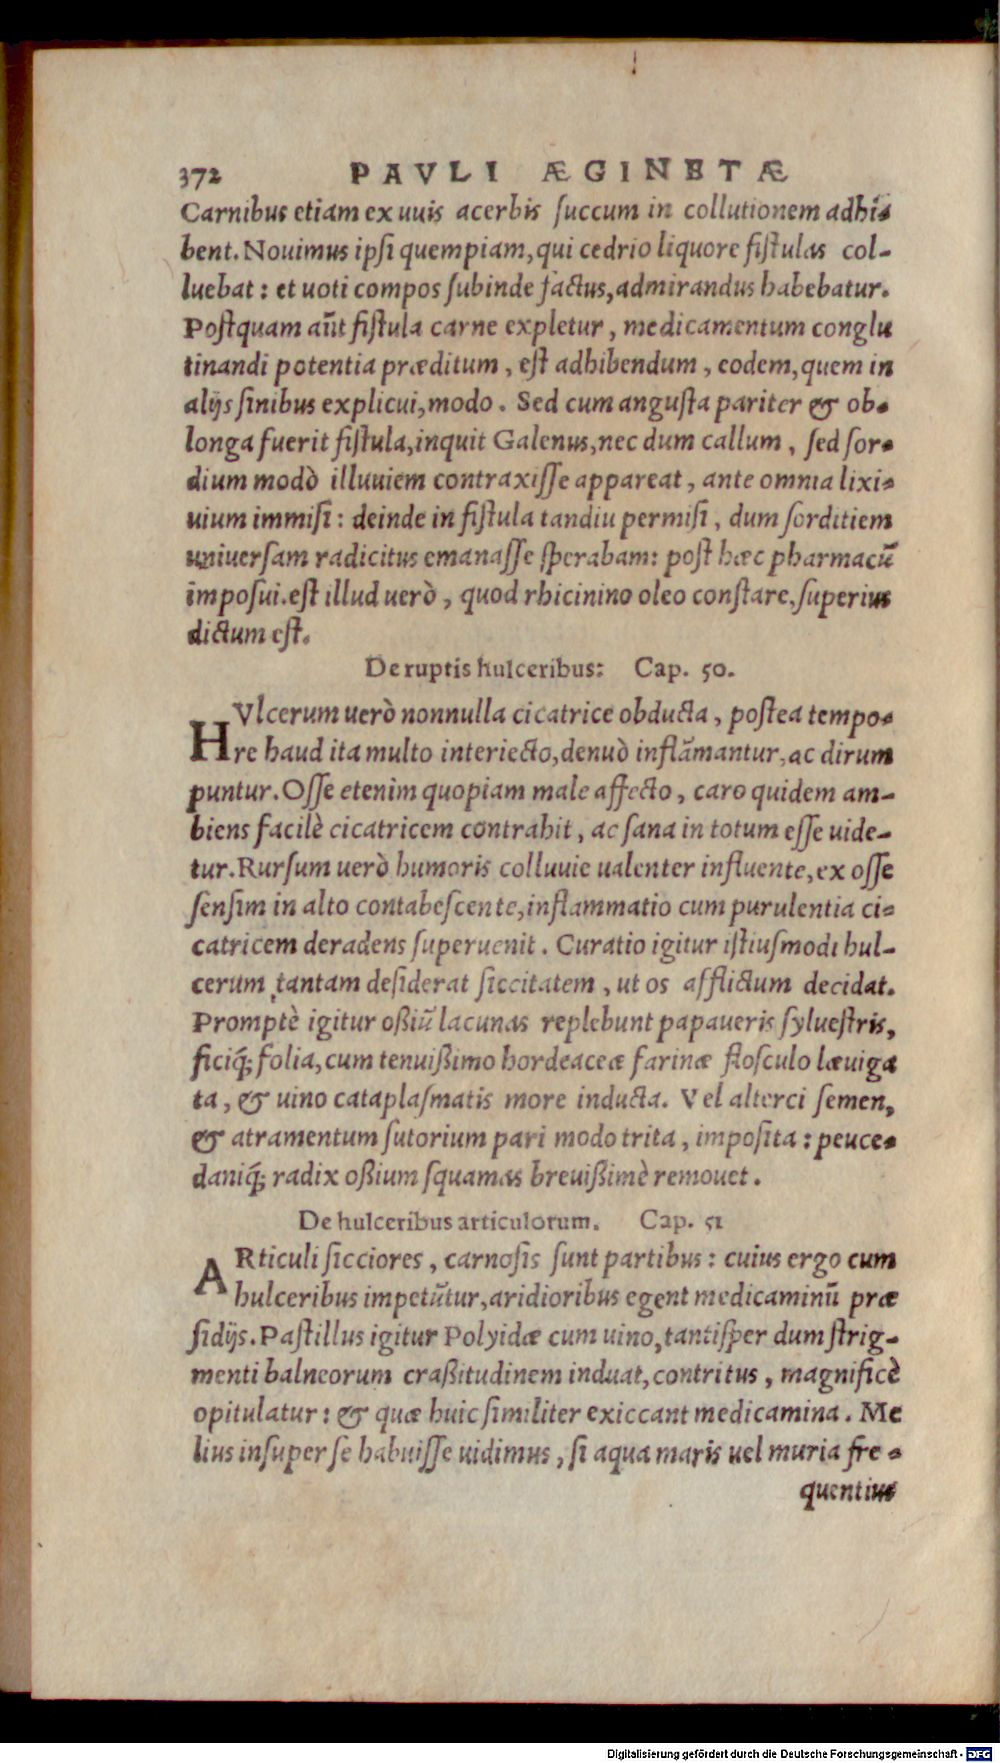 372 PAVLI ÆGINETÆ
Carnibus etiam ex uuis acerbis succum in collutionem adhi-
bent. Nouimus ipsi quempiam, qui cedrio liquore fistulas col-
luebat: et uoti compos subinde factus, admirandus habebatur.
Postquam aūt fistula carne expletur, medicamentum conglu
tinandi potentia præditum, est adhibendum, eodem, quem in
alijs sinibus explicui, modo. Sed cum angusta pariter & ob-
longa fuerit fistula, inquit Galenus, nec dum callum, sed sor-
dium modò illuuiem contraxisse appareat, ante omnia lixi-
uium immisi: deinde in fistula tandiu permisi, dum sorditiem
uniuersam radicitus emanasse sperabam: post hæc pharmacū
imposui. est illud uerò, quod rhicinino oleo constare, superius
dictum est.
De ruptis hulceribus: Cap. 50.
HVlcerum uerò nonnulla cicatrice obducta, postea tempo-
re haud ita multo interiecto, denuò inflāmantur, ac dirum
puntur. Osse etenim quopiam male affecto, caro quidem am-
biens facilè cicatricem contrahit, ac sana in totum esse uide-
tur. Rursum uerò humoris colluuie ualenter influente, ex osse
sensim in alto contabescente, inflammatio cum purulentia ci-
catricem deradens superuenit. Curatio igitur istiusmodi hul-
cerum tantam desiderat siccitatem, ut os afflictum decidat.
Promptè igitur oßiū lacunas replebunt papaueris syluestris,
ficiq́; folia, cum tenuißimo hordeaceæ farinæ flosculo læuiga
ta, & uino cataplasmatis more inducta. Vel alterci semen,
& atramentum sutorium pari modo trita, imposita: peuce-
daniq́; radix oßium squamas breuißimè remouet.
De hulceribus articulorum. Cap. 51
ARticuli sicciores, carnosis sunt partibus: cuius ergo cum
hulceribus impetūtur, aridioribus egent medicaminū præ
sidijs. Pastillus igitur Polyidæ cum uino, tantisper dum strig-
menti balneorum craßitudinem induat, contritus, magnificè
opitulatur: & quæ huic similiter exiccant medicamina. Me
lius insuper se habuisse uidimus, si aqua maris uel muria fre-
quentius
Digitalisierung gefördert durch die Deutsche Forschungsgemeinschaft - DFG